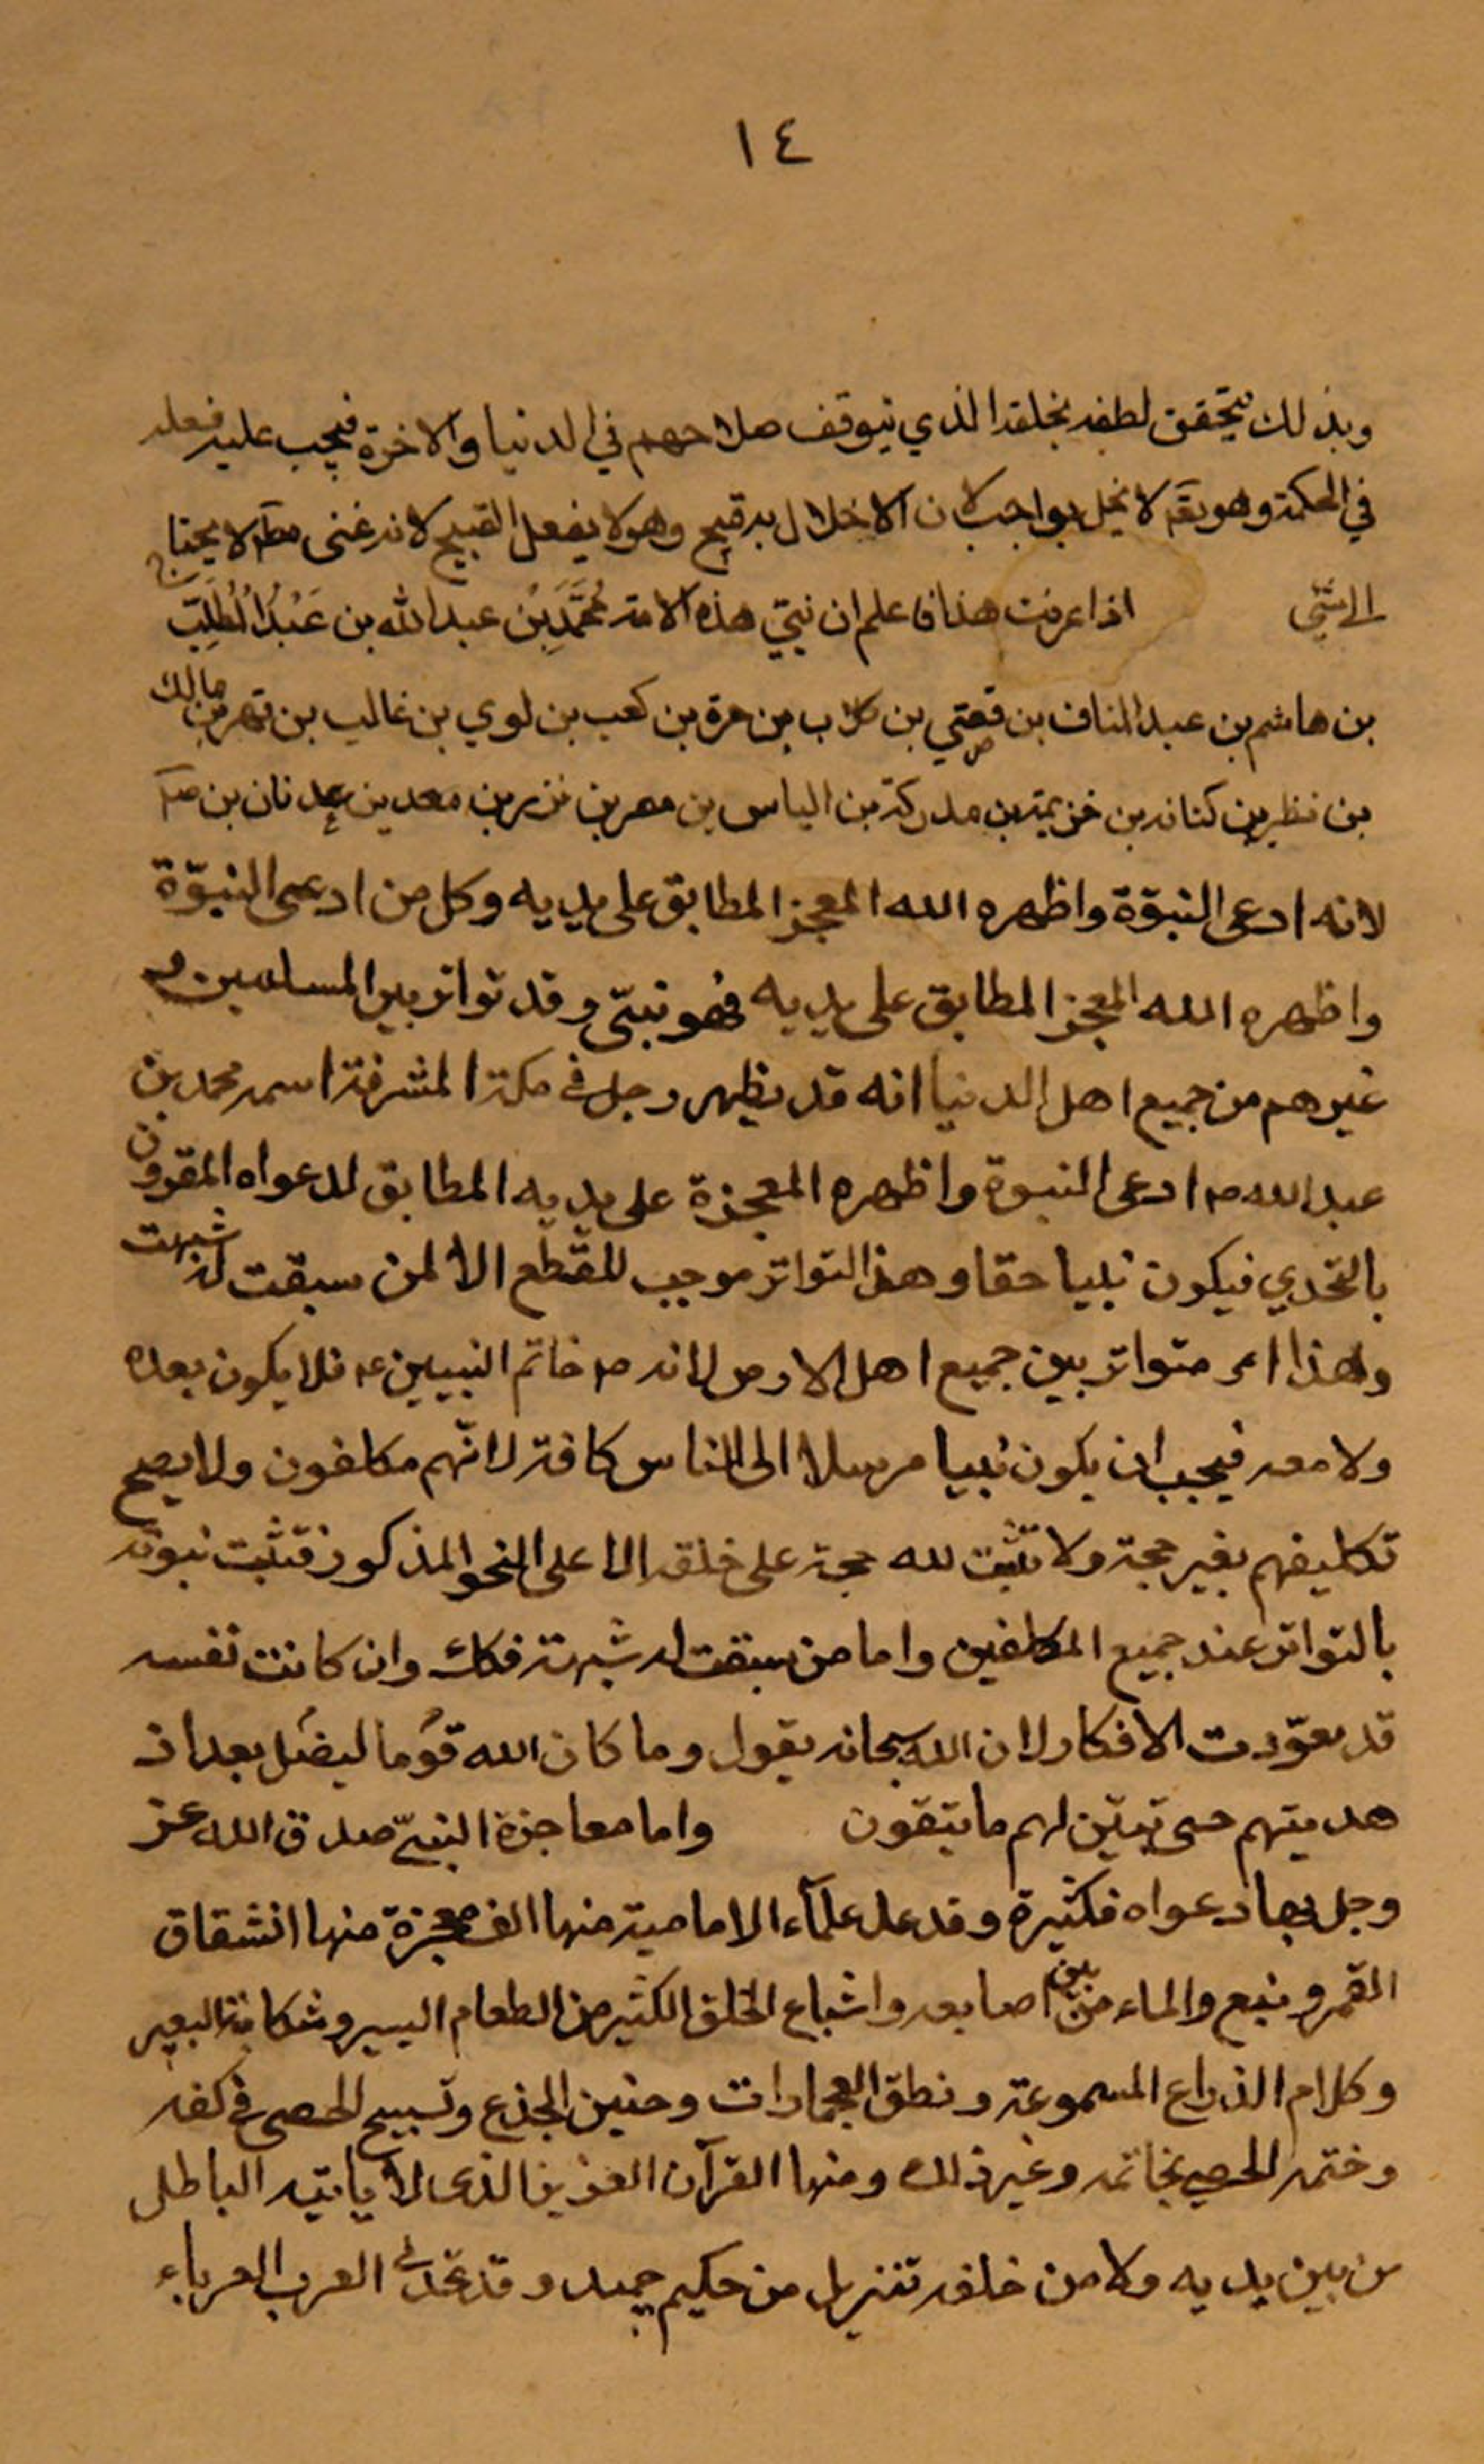 ١٤
وبذلك يتحقق لطفه بخلقه الذي يتوقف صلاحهم في الدنيا والاخرة فيجب عليه فعله
في الحكمة وهو تعَ لا يخل بواجب لان الاخلال به قبيح وهو لا يفعل القبيح لانه غنى مطَ لا يحتاج
الى شئي اذا عرفت هذا فاعلم ان نبيّ هذه الامة مُحَمَّد بْن عبد الله بن عَبْدُ الْمُطَلِّب
بن هاشم بن عبد المناف بن قصّي بن كلاب بن مرة بن كعب بن لوي بن غالب بن فهر بن مالك
بن نظر بن كنانه بن خزيمة بن مدركة بن الياس بن مضر بن نزر بن معد بن عدنان بن
لانه ادعى النبوّة واظهره الله المعجز المطابق على يديه وكل من ادعى النبوّة
واظهره الله المعجز المطابق على يديه فهو نبيّ وقد تواتر بين المسلمين و
غيرهم من جميع اهل الدنيا انه قد يظهر رجل في مكة المشرفة اسمه محمد بن
عبد الله ص ادعى النبوة واظهره المعجزة على يديه المطابق لدعواه المقرون
بالتحدي فيكون نبيا حقا وهذا التواتر موجب للقطع الا لمن سبقت له شبهت
وهذا امر متواتر بين جميع اهل الارض لانه ص خاتم النبيين ع فلا يكون بعده
ولا معه فيجب ان يكون نبيا مرسلا الى الناس كافة لانّهم مكلفون ولا يصح
تكليفهم بغير حجة ولا تثبت لله حجة على خلقه الا على النحو المذكور فتثبت نبوته
بالتواتر عند جميع المكلفين واما من سبقت له شبهة فكك وان كانت نفسه
قد تعوّدت الافكار لان الله سبحانه يقول وما كان الله قوما ليضل بعد اذ
هديتهم حتى تبيّن لهم ما يتقون واما معاجزة النبيّ صدق الله عز
وجل بها دعواه فكثيرة وقد عد علمآء الامامية منها الف معجزة منها انشقاق
القمر و نبع والماء من بين اصابعه واشباع الخلق الكثير من الطعام اليسير وشكاية البعير
وكلام الذراع المسموعة ونطق الجمادات وحنين الجذع وتسبيح الحصى في كفه
وختمه الحصي بخاتمه وغير ذلك ومنها القرآن العزيز الذى لا ياتيه الباطل
من بين يديه ولا من خلفه تنزيل من حكيم حميد وقد تحدى العرب العرباء